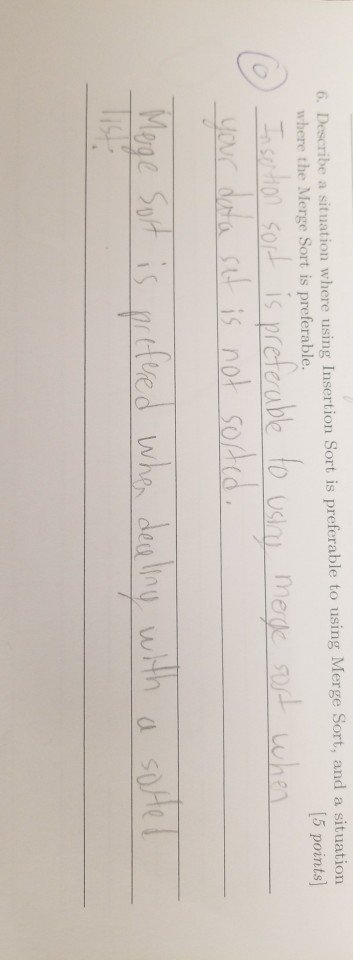 6. Describe a situation where using Insertion Sort is preferable to using Merge Sort, and a situation
where the Merge Sort is preferable. [5 points]
Insertion sort is preferable to using merge sort when
your data set is not sorted.
Merge Sort is prefered when dealing with a sorted
list.